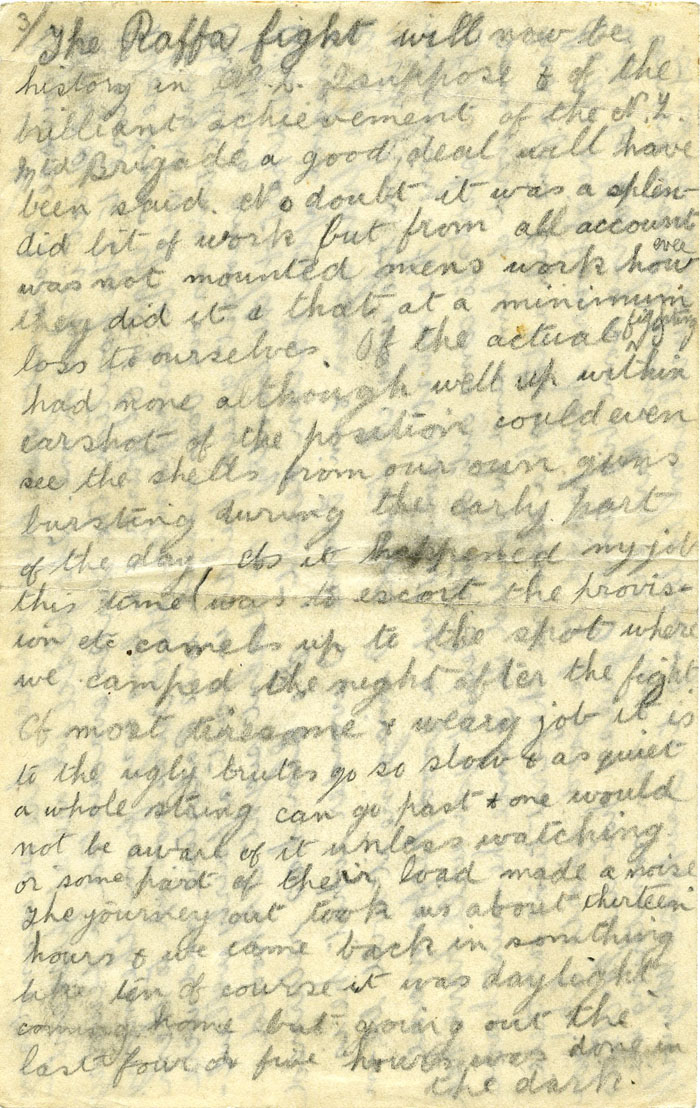 3/
The Raffa fight will now be
history in N.Z. I suppose & of the
brilliant achievement of the N.Z.
Mtd Brigade a good deal will have
been said. No doubt it was a splen-
did bit of work but from all account
was not mounted mens work how ever
they did it & that at a minimum
loss to ourselves. Of the actual fighting
had none although well up within
earshot of the position could even
see the shells from our own guns
bursting during the early part
of the day, As it happened my job
this time was to escort the provis-
ion etc camels up to the spot where
we camped the night after the fight
A most tiresome & weary job it is
to the ugly brutes go so slow & as quiet
a whole string can go past & one would
not be aware of it unless watching
or some part of their load made a noise
The journey out took us about thirteen
hours & we came back in somthing
like ten of course it was daylight
coming home but going out the
last four or five hours was done in
the dark.